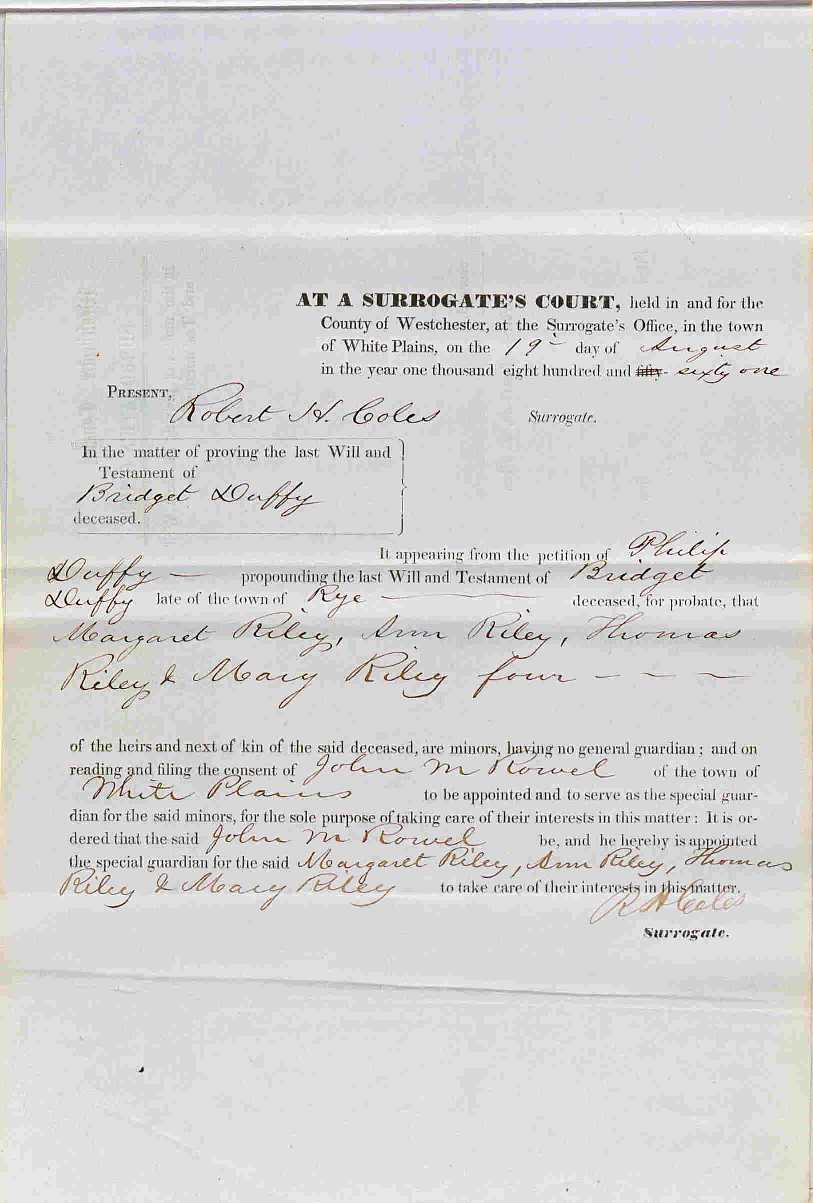 AT A SURROGATE'S COURT, held in and for the
County of Westchester, at the Surrogate's Office, in the town
of White Plains, on the 19 day of August
in the year one thousand eight hundred and fifty- sixty one
PRESENT,
Robert H. Coles Surrogate.
In the matter of proving the last Will and
Testament of
Bridget Duffy
deceased.
It appearing from the petition of Philip
Duffy — propounding the last Will and Testament of Bridget
Duffy late of the town of Rye — deceased, for probate, that
Margaret Riley, Ann Riley, Thomas
Riley & Mary Riley four - - -
of the heirs and next of kin of the said deceased, are minors, having no general guardian; and on
reading and filing the consent of John M Rowel of the town of
White Plains to be appointed and to serve as the special guar-
dian for the said minors, for the sole purpose of taking care of their interests in this matter: It is or-
dered that the said John M Rowel be, and he hereby is appointed
the special guardian for the said Margaret Riley, Ann Riley, Thomas
Riley & Mary Riley to take care of their interests in this matter.
R H Coles
Surrogate.